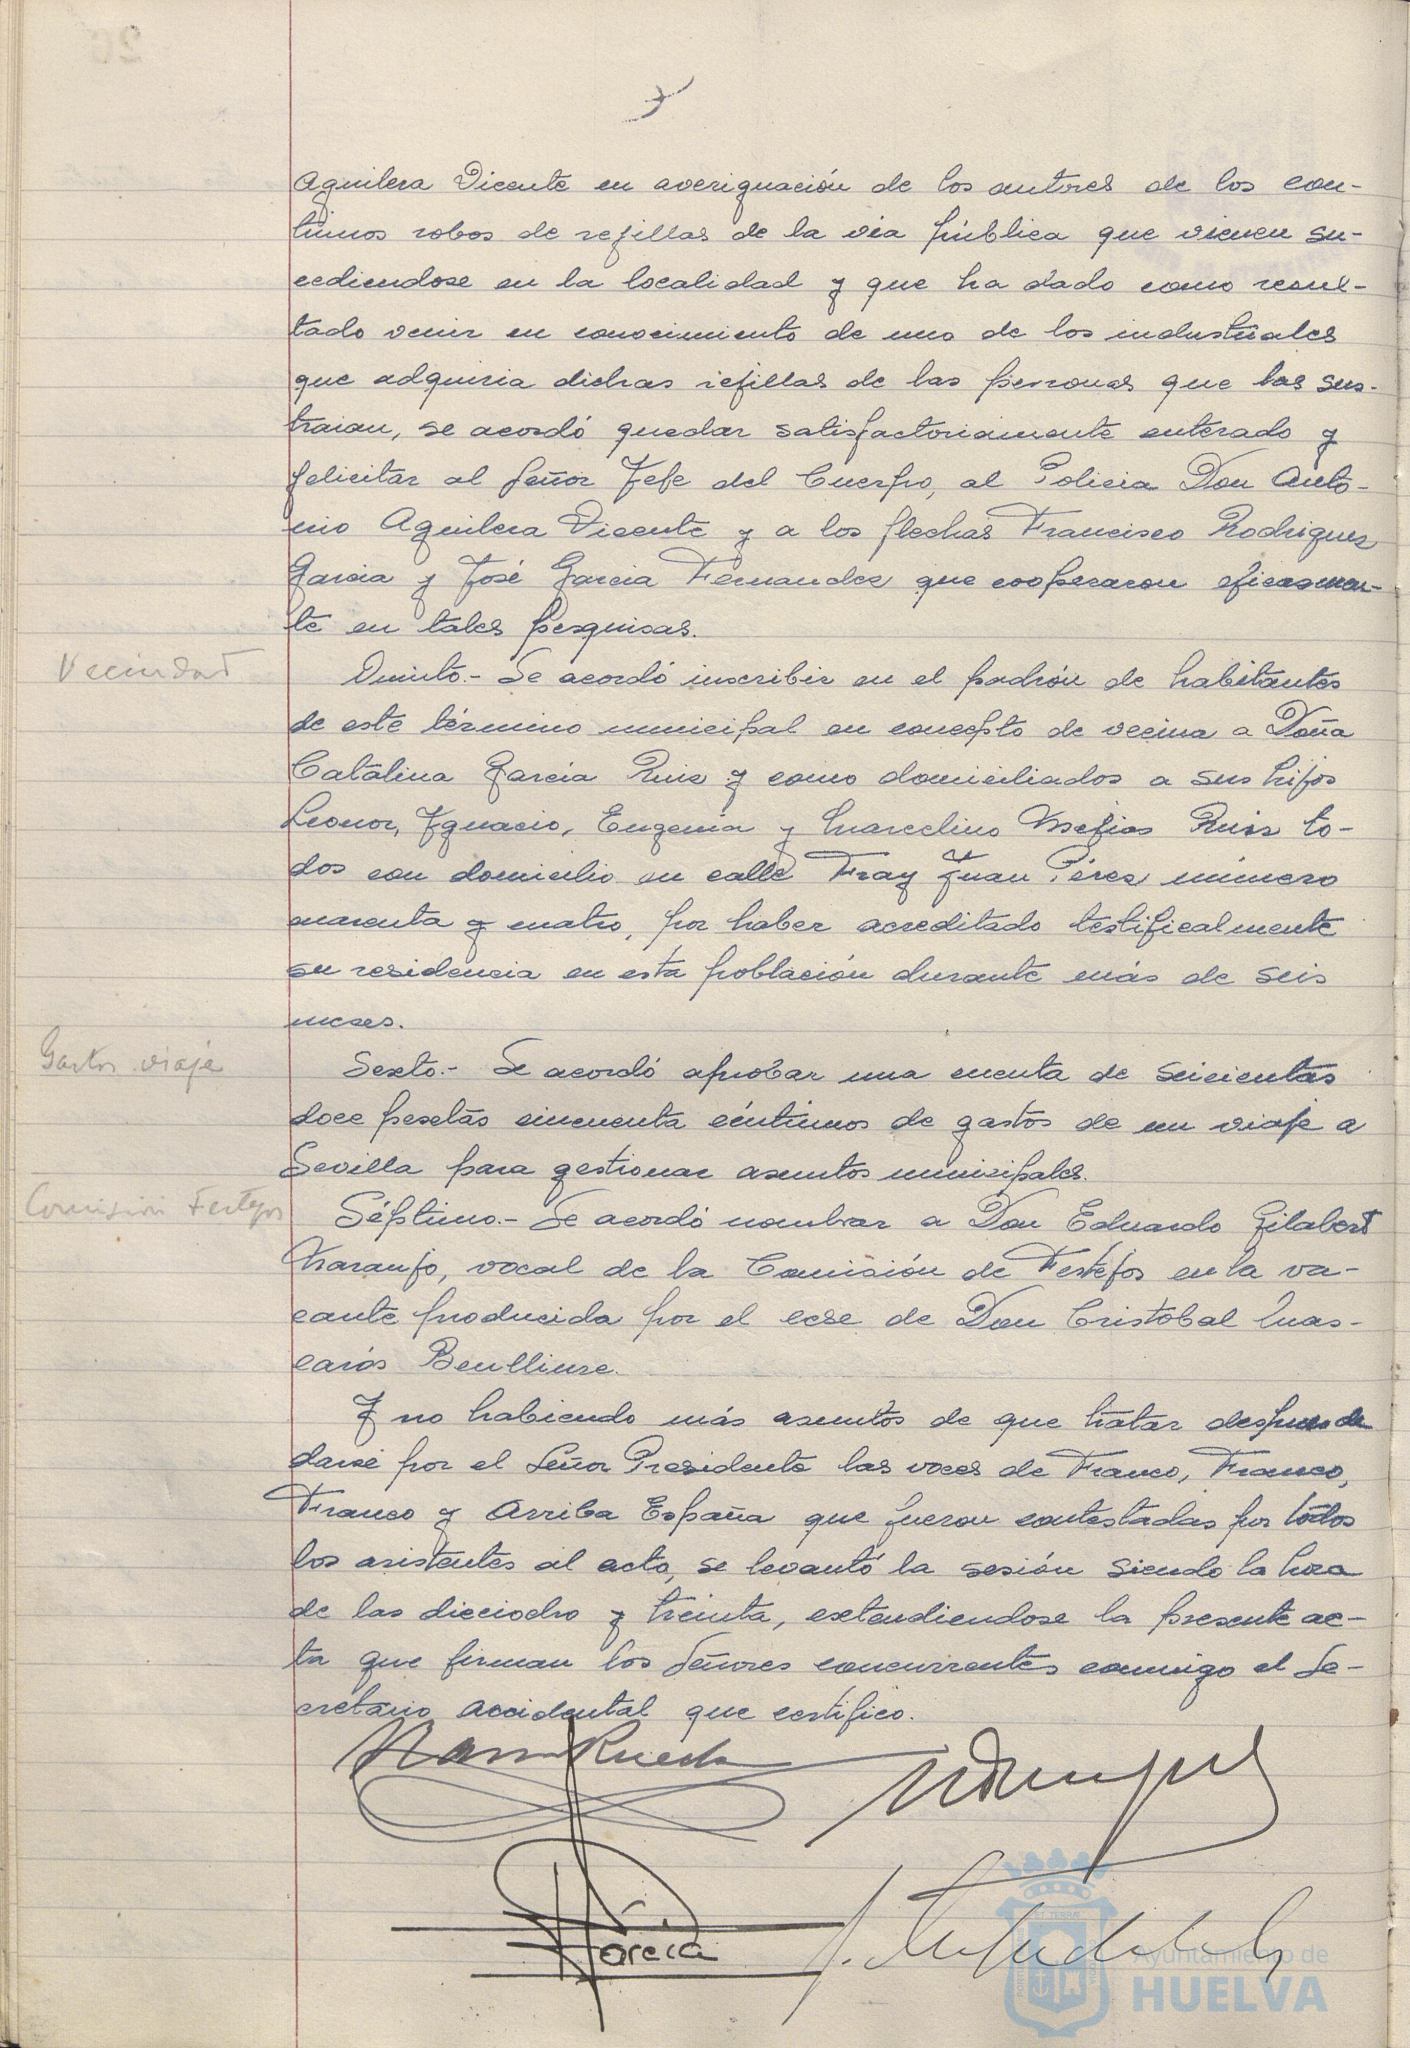 Aguilera Vicente en averiguación de los autores de los con-
tinuos robos de rejillas de la via pública que vienen su-
cediendose en la localidad y que ha dado como resul-
tado venir en conocimiento de uno de los industriales
que adquiria dichas rejillas de las personas que las sus-
traian, se acordó quedar satisfactoriamente enterado y
felicitar al Señor Jefe del Cuerpo, al Policia Don Anto-
nio Aguilera Vicente y a los flechas Francisco Rodriguez
Garcia y José Garcia Fernandez que cooperaron eficasmen-
te en tales pesquisas.
Vecindad
Quinto.- Se acordó inscribir en el padrón de habitantes
de este término municipal en concepto de vecina a Doña
Catalina Garcia Ruiz y como domiciliados a sus hijos
Leonor, Ygnacio, Eugenia y Marcelino Mejias Ruiz to-
dos con domicilio en calle Fray Juan Pérez número
cuarenta y cuatro, por haber acreditado testificalmente
su residencia en esta población durante más de seis
meses.
Gastos viaje
Sexto.- Se acordó aprobar una cuenta de seicientas
doce pesetas cincuenta céntimos de gastos de un viaje a
Sevilla para gestionar asuntos municipales.
Comision Festejos
Séptimo.- Se acordó nombrar a Don Eduardo Gilabert
Naranjo, vocal de la Comisión de Festejos en la va-
cante producida por el cese de Don Cristobal Mas-
carós Benlliure.
Y no habiendo más asuntos de que tratar despues de
darse por el Señor Presidente las voces de Franco, Franco,
Franco y Arriba España que fueron contestadas por todos
los asistentes al acto, se levantó la sesión siendo la hora
de las dieciocho y treinta, extendiendose la presente ac-
ta que firman los Señores concurrentes conmigo el Se-
cretario accidental que certifico.
Rueda
García
Ayuntamiento de
HUELVA